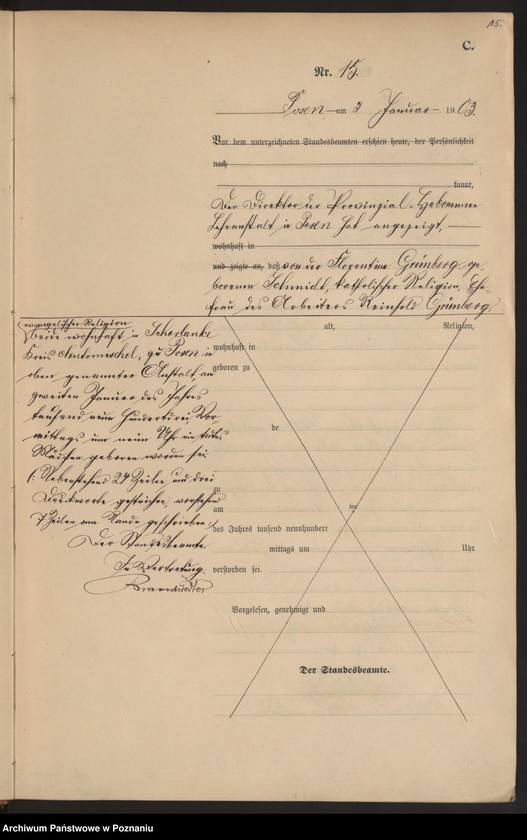 15.
C.
Nr. 15.
Posen, am 3 Januar 1903.
Vor dem unterzeichneten Standesbeamten erschien heute, der Persönlichkeit
nach
kannt,
Der Direktor der Provinzial-Hebammen
Lehranstalt in Posen hat angezeigt,
wohnhaft in
und zeigte an, daß von der Florentine Grünberg ge-
borenen Schmidt, katholischer Religion, Ehe-
frau des Arbeiters Reinhold Grünberg,
evangelischer Religion
beide wohnhaft in Scherlanke
Kreis Neutomischel, zu Posen in
oben genannter Anstalt am
zweiten Januar des Jahres
tausend neun hundert drei, Vor-
mittags um neun Uhr ein totes
Mädchen geboren worden sei.
(: Nebenstehend 27 Zeilen und drei
Druckworte gestrichen, vorstehend
7 Zeilen am Rande geschrieben :)
Der Standesbeamte.
In Vertretung.
Brandstädter
alt, Religion,
wohnhaft in
geboren zu
de
zu
am ten
des Jahres tausend neunhundert
mittags um Uhr
verstorben sei.
Vorgelesen, genehmigt und
Der Standesbeamte.
Archiwum Państwowe w Poznaniu